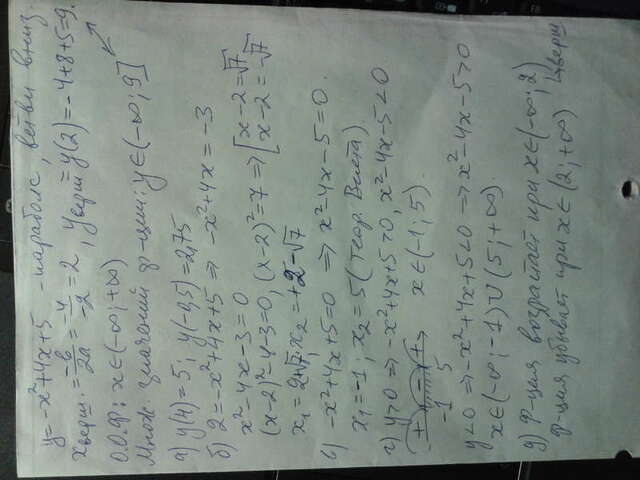 y=-x²+4x+5 - парабола, ветви вниз.
xверш.=-b/2a=-4/-2=2, yверш=y(2)=-4+8+5=9.
О.О.Ф.: x∈(-∞;+∞)
Множ. значений ф-ции: y∈(-∞;9]
а) y(4)=5; y(-0,5)=2,75
б) 2=-x²+4x+5 ⇒ -x²+4x=-3
x²-4x-3=0
(x-2)²-4-3=0, (x-2)²=7 ⇒ [x-2=√7
x-2=-√7
x₁=2+√7, x₂=+2-√7
в) -x²+4x+5=0 ⇒ x²-4x-5=0.
x₁=-1; x₂=5 (теор. Виета)
г) y>0 ⇒ -x²+4x+5>0, x²-4x-5<0
+ - +
-1 5
x∈(-1;5).
y<0 ⇒ -x²+4x+5<0 ⇒ x²-4x-5>0
x∈(-∞;-1)∪(5;+∞).
д) Ф-ция возрастает при x∈(-∞;2)
Ф-ция убывает при x∈(2;+∞)
xверш